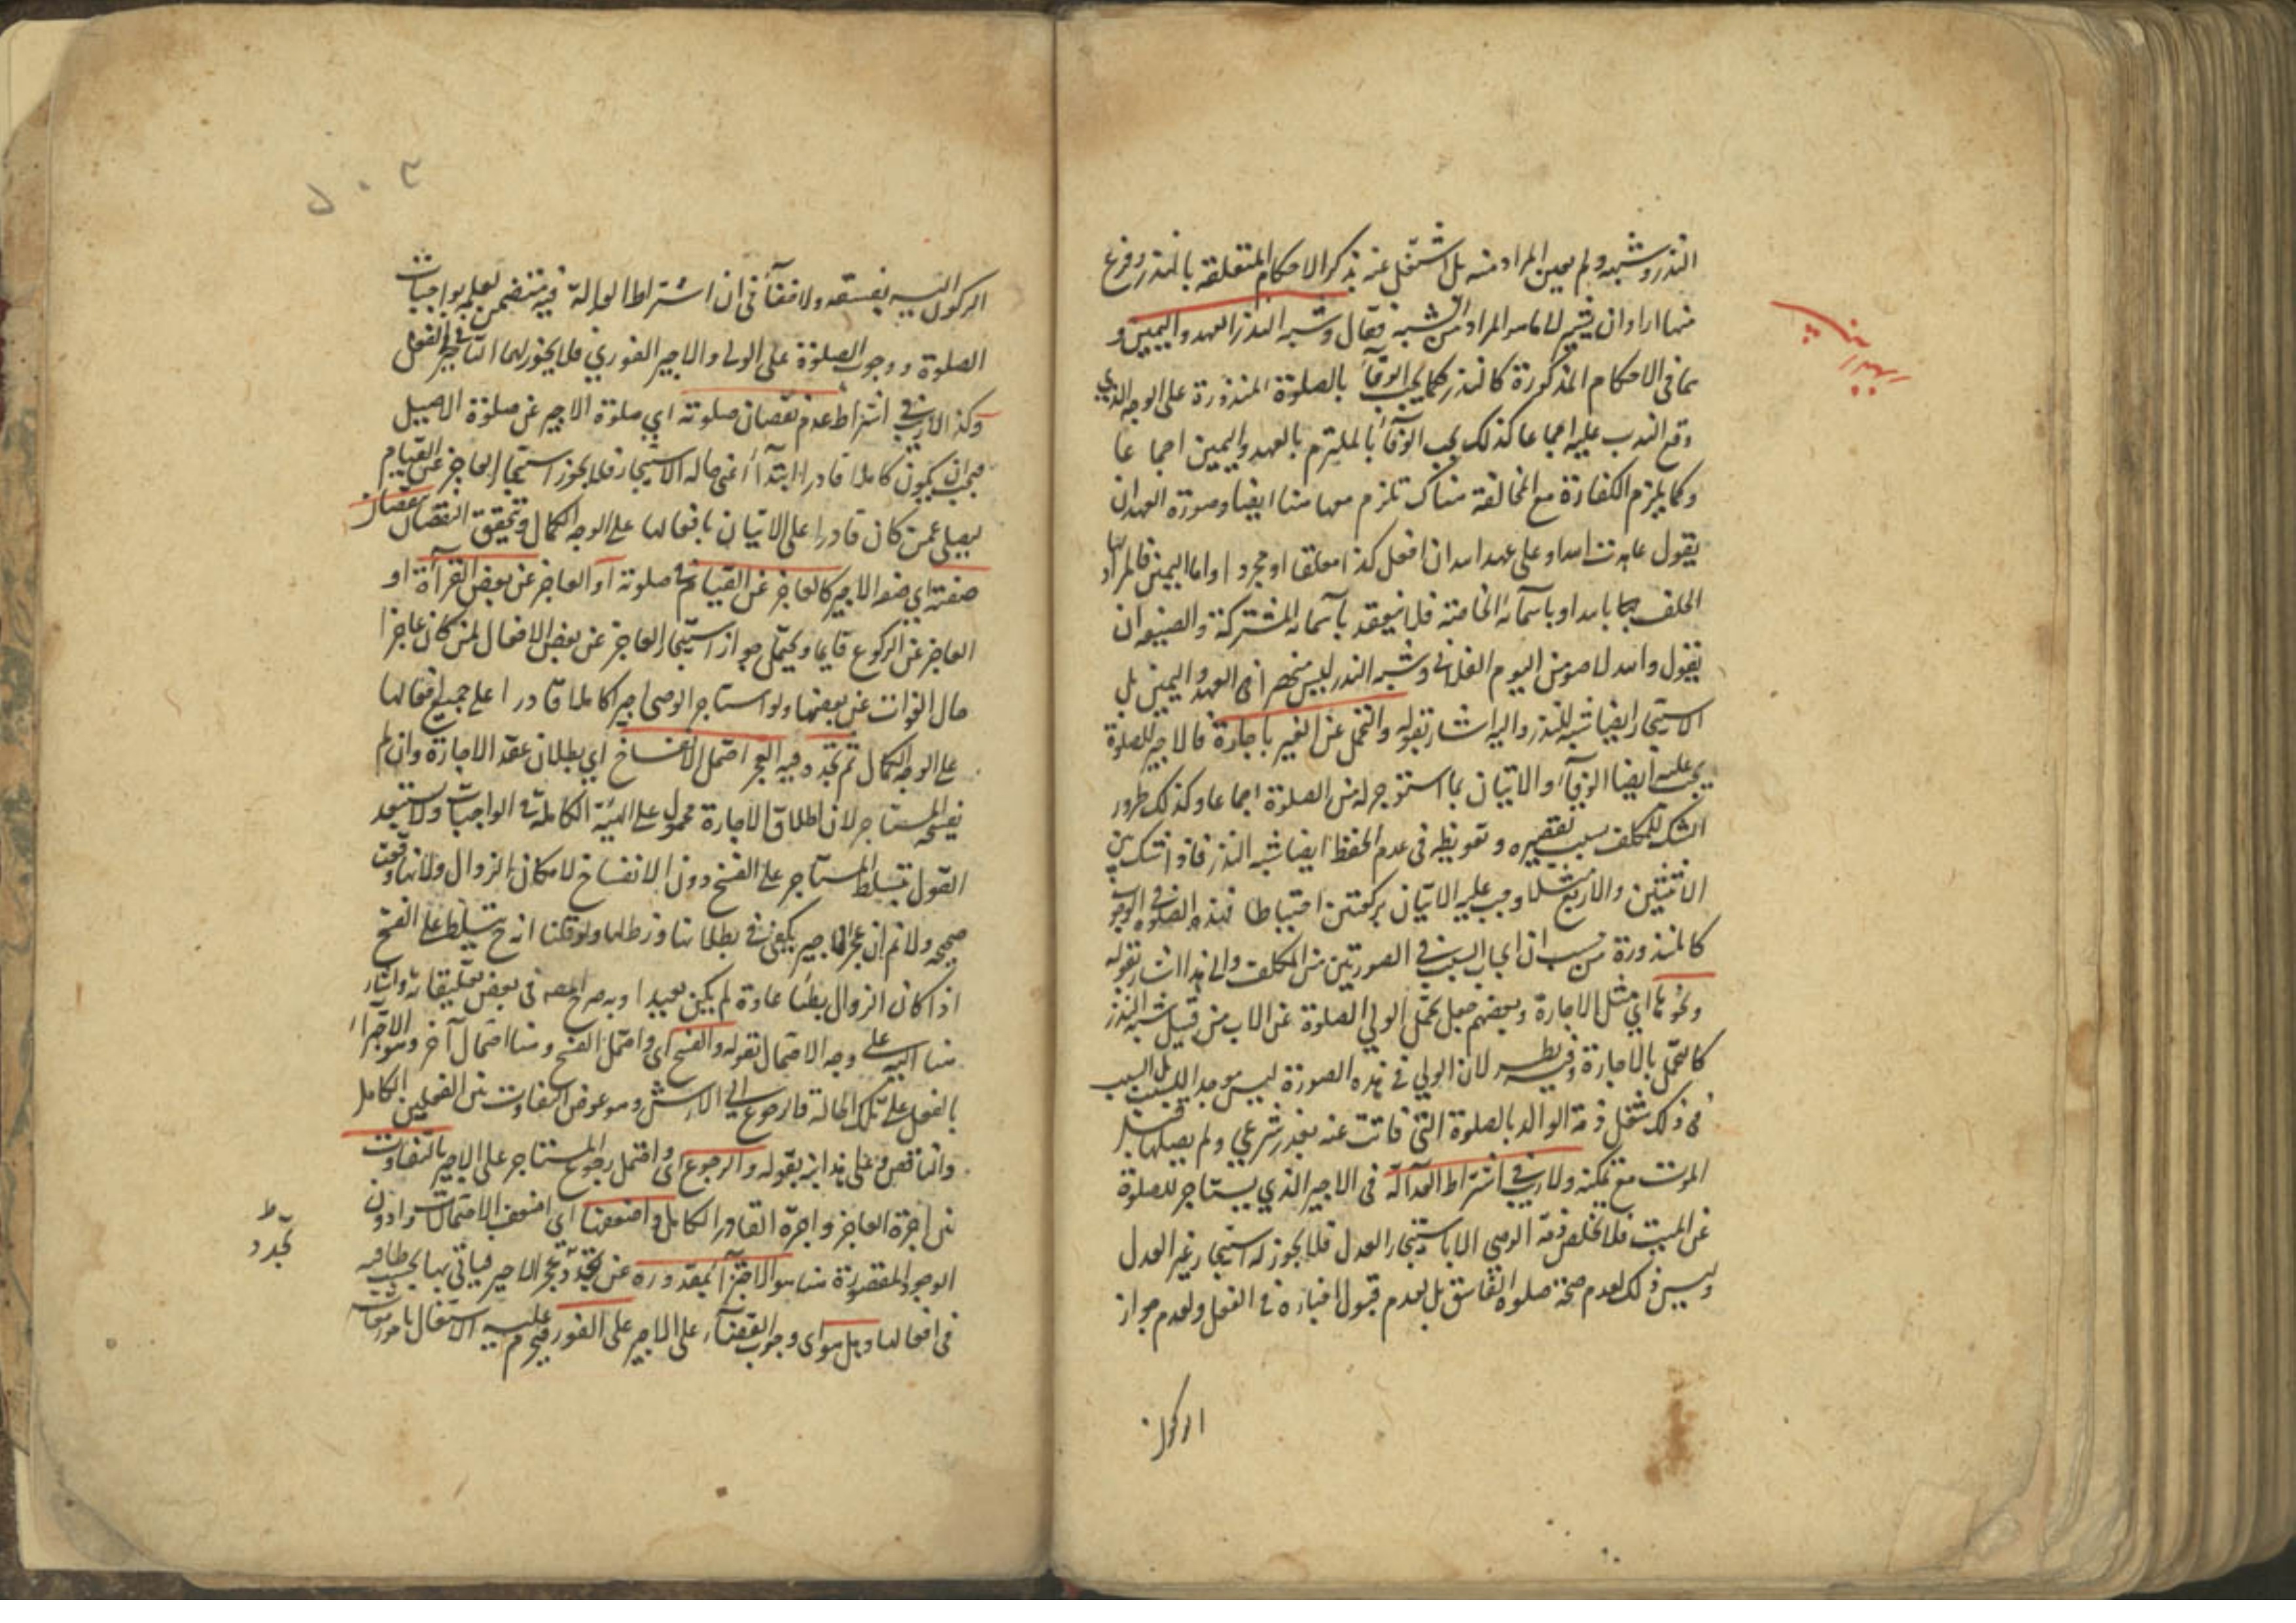 النذر وشبهه ولم يعين المراد منه بل اشتغل عنه بذكر الاحكام المتعلقة بالنذر وفرغ
منها اراد ان يشير الى ما هو المراد من الشبه فقال وشبه النذر العهد واليمين و
هما في الاحكام المذكورة كالنذر فكما يجب الوفآء بالصلوة المنذورة على الوجه الذي
وقع النذر عليه اجماعا كذلك يجب الوفآء بالملتزم بالعهد واليمين اجماعا
وكما يلزم الكفارة مع المخالفة هناك تلزم معها هنا ايضا وصورة العهد ان
يقول عاهدت الله او على عهد الله ان افعل كذا معلقا او مجردا واما اليمين فالمراد بها
الحلف بالله او باسمآئه الخاصة فلا ينعقد باسمائه المشتركة والصيغة ان
يقول والله لاصومن اليوم الفلاني وشبه النذر ليس منحصرا في العهد واليمين بل
الاستيجار ايضا شبه للنذر واليه اشار بقوله والتحمل عن الغير باجارة فالاجير للصلوة
يجب عليه ايضا الوفآء والاتيان بما استوجر له من الصلوة اجماعا وكذلك طرور
الشك للمكلف بسبب تقصيره وتفريطه في عدم الحفظ ايضا شبه النذر فاذا شك بين
الاثنتين والاربع مثلا وجب عليه الاتيان بركعتين احتياطا فهذه الصلوة في الوجوب
كالمنذورة من حيث ان ايجاب السبب في الصورتين من المكلف والى هذا اشار بقوله
ونحوها اي مثل الاجارة وبعضهم جعل تحمل الولي الصلوة عن الاب من قبيل شبه النذر
كالتحمل بالاجارة وفيه نظر لان الولي في هذه الصورة ليس موجد السبب بل السبب
في ذلك شغل ذمة الوالد بالصلوة التي فاتت عنه بعذر شرعي ولم يصلها قبل
الموت مع تمكنه ولا ريب في اشتراط العدآلة في الاجير الذي يستاجر للصلوة
عن الميت فلا تخلص ذمة الوصي الا باستيجار العدل فلا يجوز له استيجار غير العدل
وليس ذلك لعدم صحة صلوة الفاسق بل لعدم قبول اخباره في الفعل ولعدم جواز
الركون
الركون اليه بفسقه ولا خفآء في ان اشتراط العدالة فيه متضمن لعلمه بواجبات
الصلوة ووجوب الصلوة على الولي والاجير الفوري فلا يجوز لهما التاخير في الفعل
وكذا لا ريب في اشتراط عدم نقصان صلوته اي صلوة الاجير عن صلوة الاصيل
فيجب ان يكون كاملا قادرا ابتدآء اعني حالة الاستيجار فلا يجوز استيجار العاجز عن القيام
ليصلي عمن كان قادرا على الاتيان بافعالها على الوجه الكمال وتحقق النقصان بنقصان
صفته اي صفة الاجير كالعاجز عن القيام في صلوته او العاجز عن بعض القرآءة او
العاجز عن الركوع قايما ويحتمل جواز استيجار العاجز عن بعض الافعال لمن كان عاجزا
حال الفوات عن بعضها ولو استاجر الوصي اجيرا كاملا قادرا على جميع افعالها
على الوجه الكمال ثم تجدد فيه العجز احتمل الانفساخ اي بطلان عقد الاجارة وان لم
يفسخه المستاجر لان اطلاق الاجارة محمول على الهيئة الكاملة في الواجبات ولا يستبعد
القول بتسلط المستاجر على الفسخ دون الانفساخ لامكان الزوال ولانها وقعت
صحيحة ولا ثم ان عجز الاجير يكفي في بطلانها وزواله ولو قلنا انه ح يتسلط على الفسخ
اذا كان الزوال بطئا عادة لم يكن بعيدا وبه صرح المصه في بعض تعليقاته واشار
هنا اليه على وجه الاحتمال بقوله والفسخ اي واحتمل الفسخ وهنا احتمال آخر وهو الاجزآء
بالفعل على تلك الحالة فالرجوع الى الارش وهو عوض التفاوت بين الفعلين الكامل
والناقص وعلى هذا نبه بقوله والرجوع اي واحتمل رجوع المستاجر على الاجير بالتفاوت
بين اجرة العاجز واجرة القادر الكامل واضعفها اي اضعف الاحتمالات وادون
الوجوه المقصورة هنا هو الاجتزآء بمقدوره عن تجدد عجز الاجير فياتي بها بحسب طاقته
في افعالها وهل هو اي وجوب القضآء على الاجير على الفور فيحرم عليه الاشتغال بامور
تجدد ط